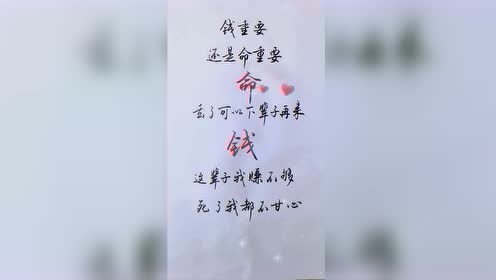 钱重要
还是命重要
命
丢了可以下辈子再来
钱
这辈子我赚不够
死了我都不甘心